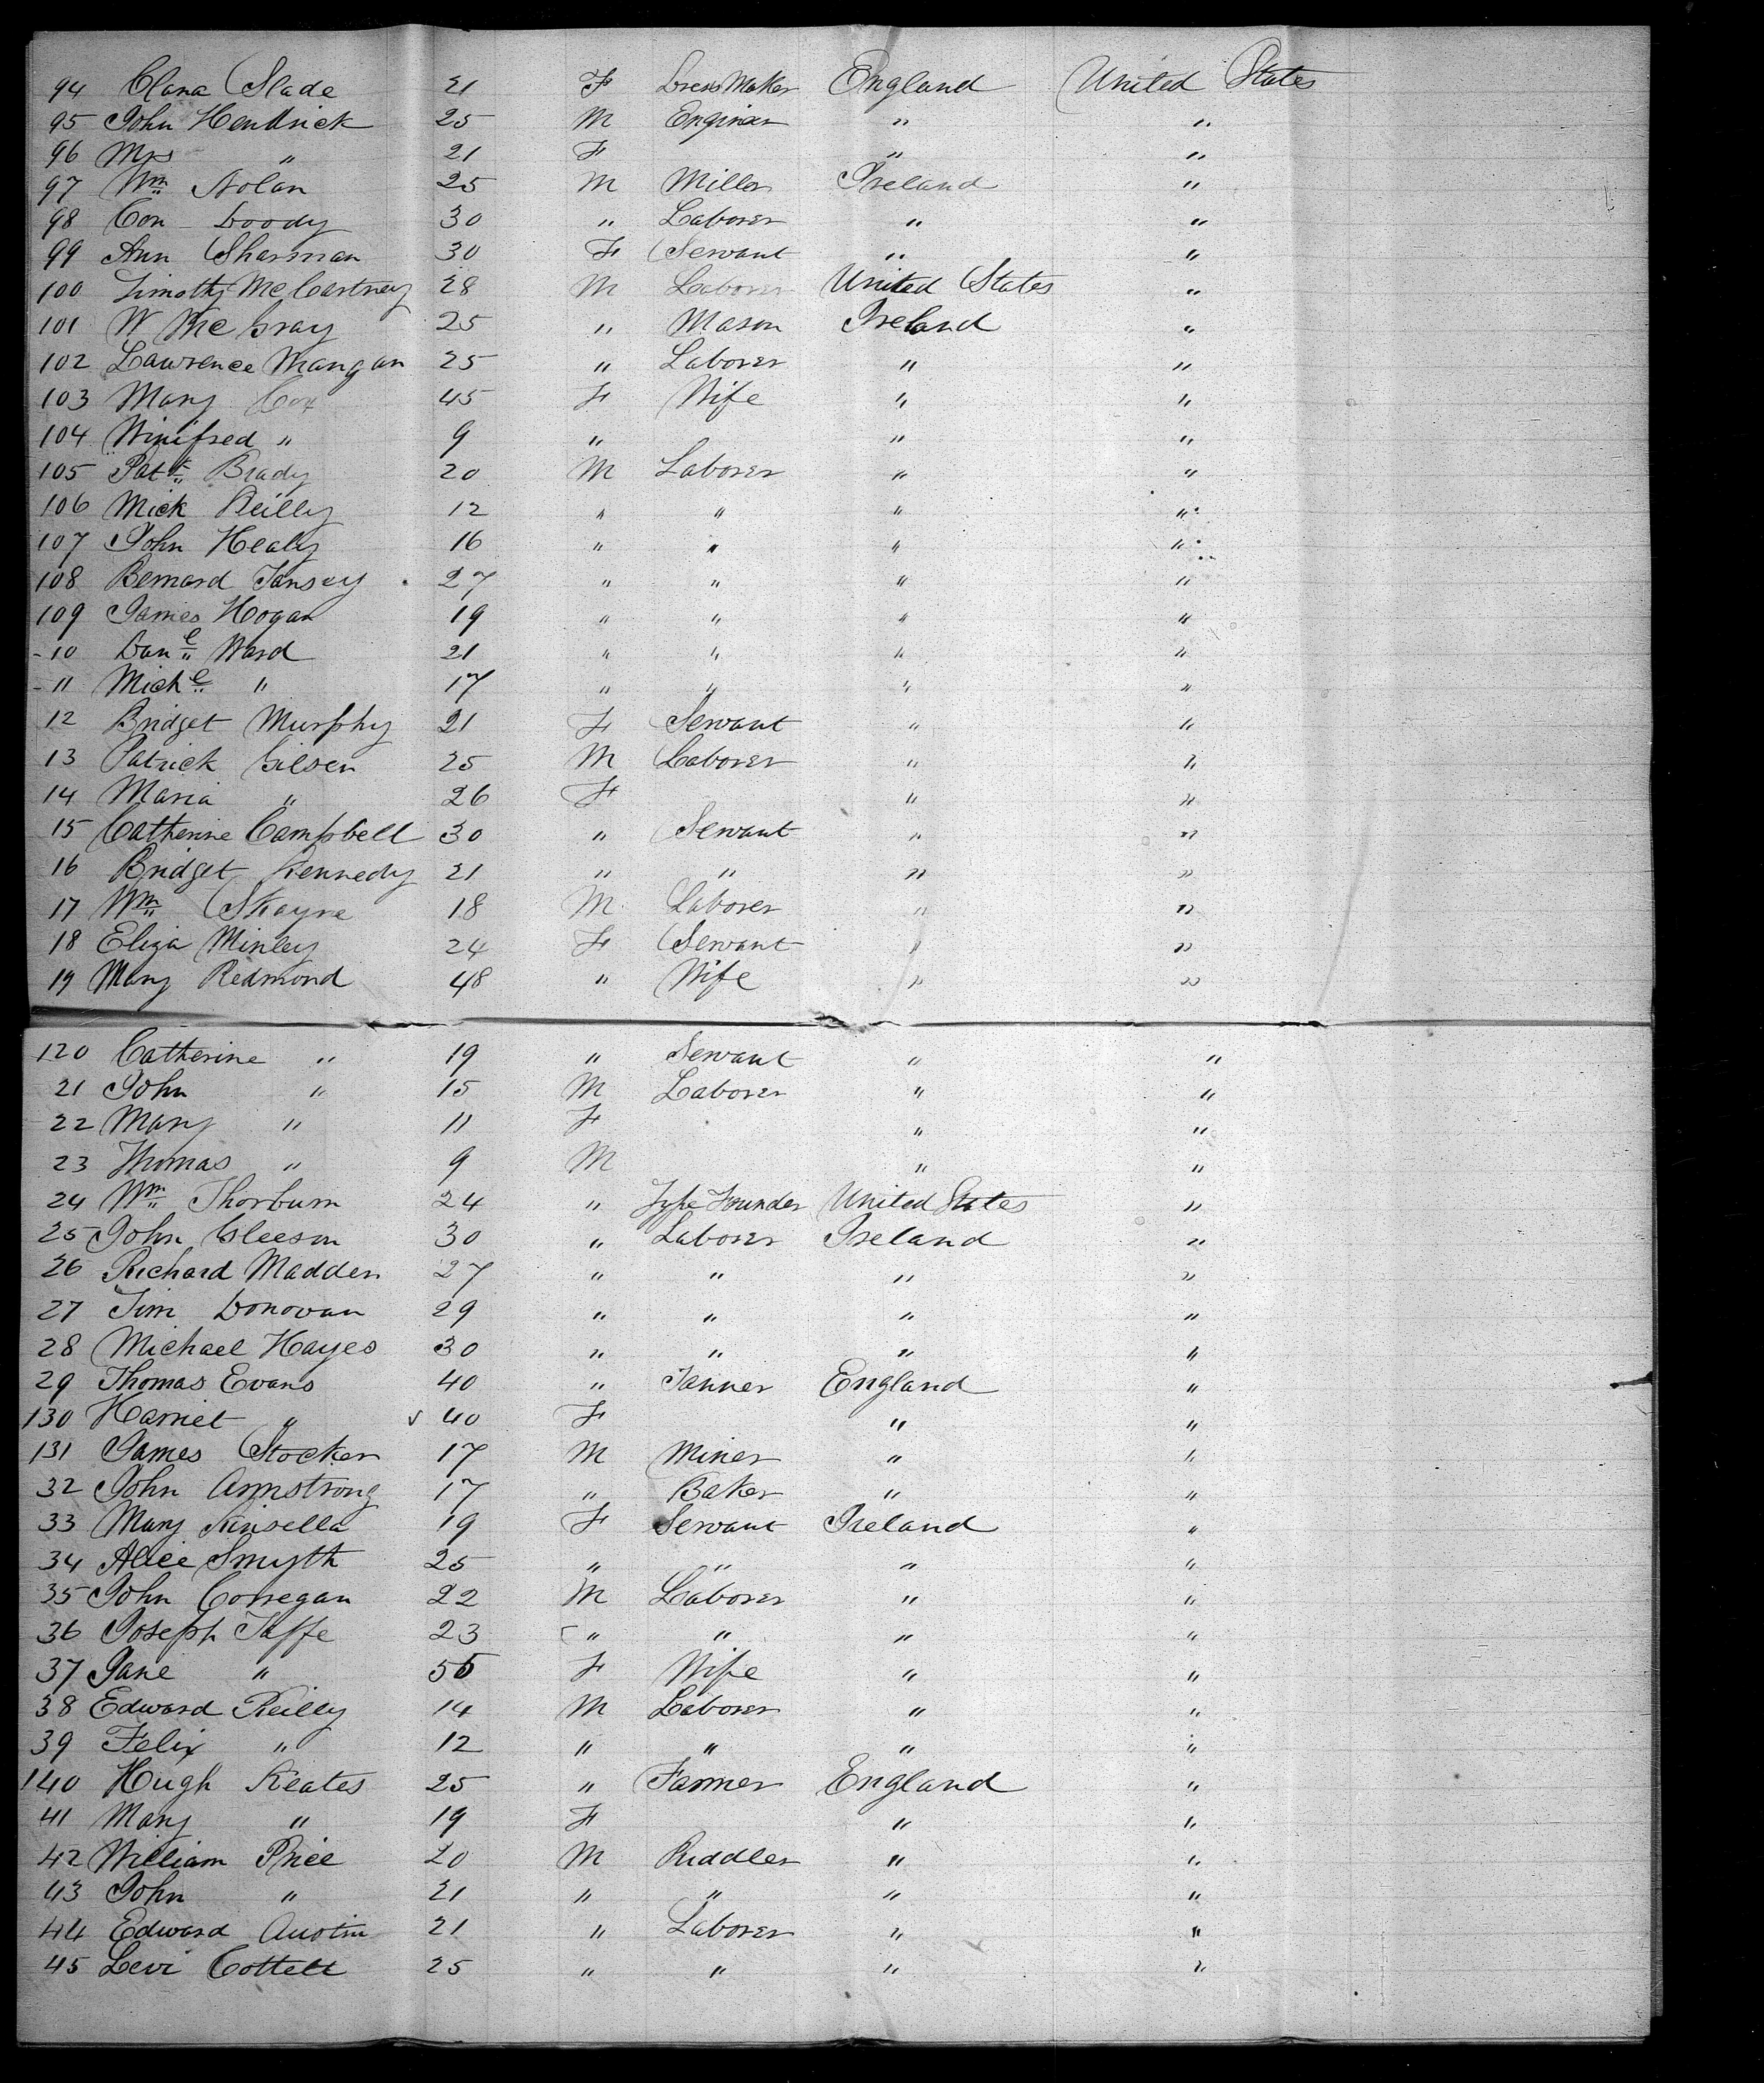 94 Clara Slade 21 F Dress Maker England United States
95 John Hendrick 25 M Engineer " "
96 Mrs " 21 F " "
97 Wm Nolan 25 M Miller Ireland "
98 Con Doody 30 " Laborer " "
99 Ann Sharman 30 F Servant " "
100 Timothy McCartney 28 M Laborer United States "
101 W McGray 25 " Mason Ireland "
102 Lawrence Mangan 25 " Laborer " "
103 Mary Cox 45 F Wife " "
104 Winifred " 9 " " "
105 Patk Brady 20 M Laborer " "
106 Mick Reilly 12 " " " "
107 John Healy 16 " " " "
108 Bernard Tansey 27 " " " "
109 James Hogan 19 " " " "
-10 Danl Ward 21 " " " "
-11 Michl " 17 " " " "
12 Bridget Murphy 21 F Servant " "
13 Patrick Gilsen 25 M Laborer " "
14 Maria " 26 F " "
15 Catherine Campbell 30 " Servant " "
16 Bridget Kennedy 21 " " " "
17 Wm Skayne 18 M Laborer " "
18 Eliza Minley 24 F Servant " "
19 Mary Redmond 48 " Wife " "
120 Catherine " 19 " Servant " "
21 John " 15 M Laborer " "
22 Mary " 11 F " "
23 Thomas " 9 M " "
24 Wm Thorburn 24 " Type Founder United States "
25 John Gleeson 30 " Laborer Ireland "
26 Richard Madden 27 " " " "
27 Tim Donovan 29 " " " "
28 Michael Hayes 30 " " " "
29 Thomas Evans 40 " Tanner England "
130 Harriet " 40 F " "
131 James Stocker 17 M Miner " "
32 John Armstrong 17 " Baker " "
33 Mary Kinsella 19 F Servant Ireland "
34 Alice Smyth 25 " " " "
35 John Corregan 22 M Laborer " "
36 Joseph Taffe 23 " " " "
37 Jane " 55 F Wife " "
38 Edward Reilly 14 M Laborer " "
39 Felix " 12 " " " "
140 Hugh Keates 25 " Farmer England "
41 Mary " 19 F " "
42 William Price 20 M Puddler " "
43 John " 21 " " " "
44 Edward Austin 21 " Laborer " "
45 Levi Cottell 25 " " " "